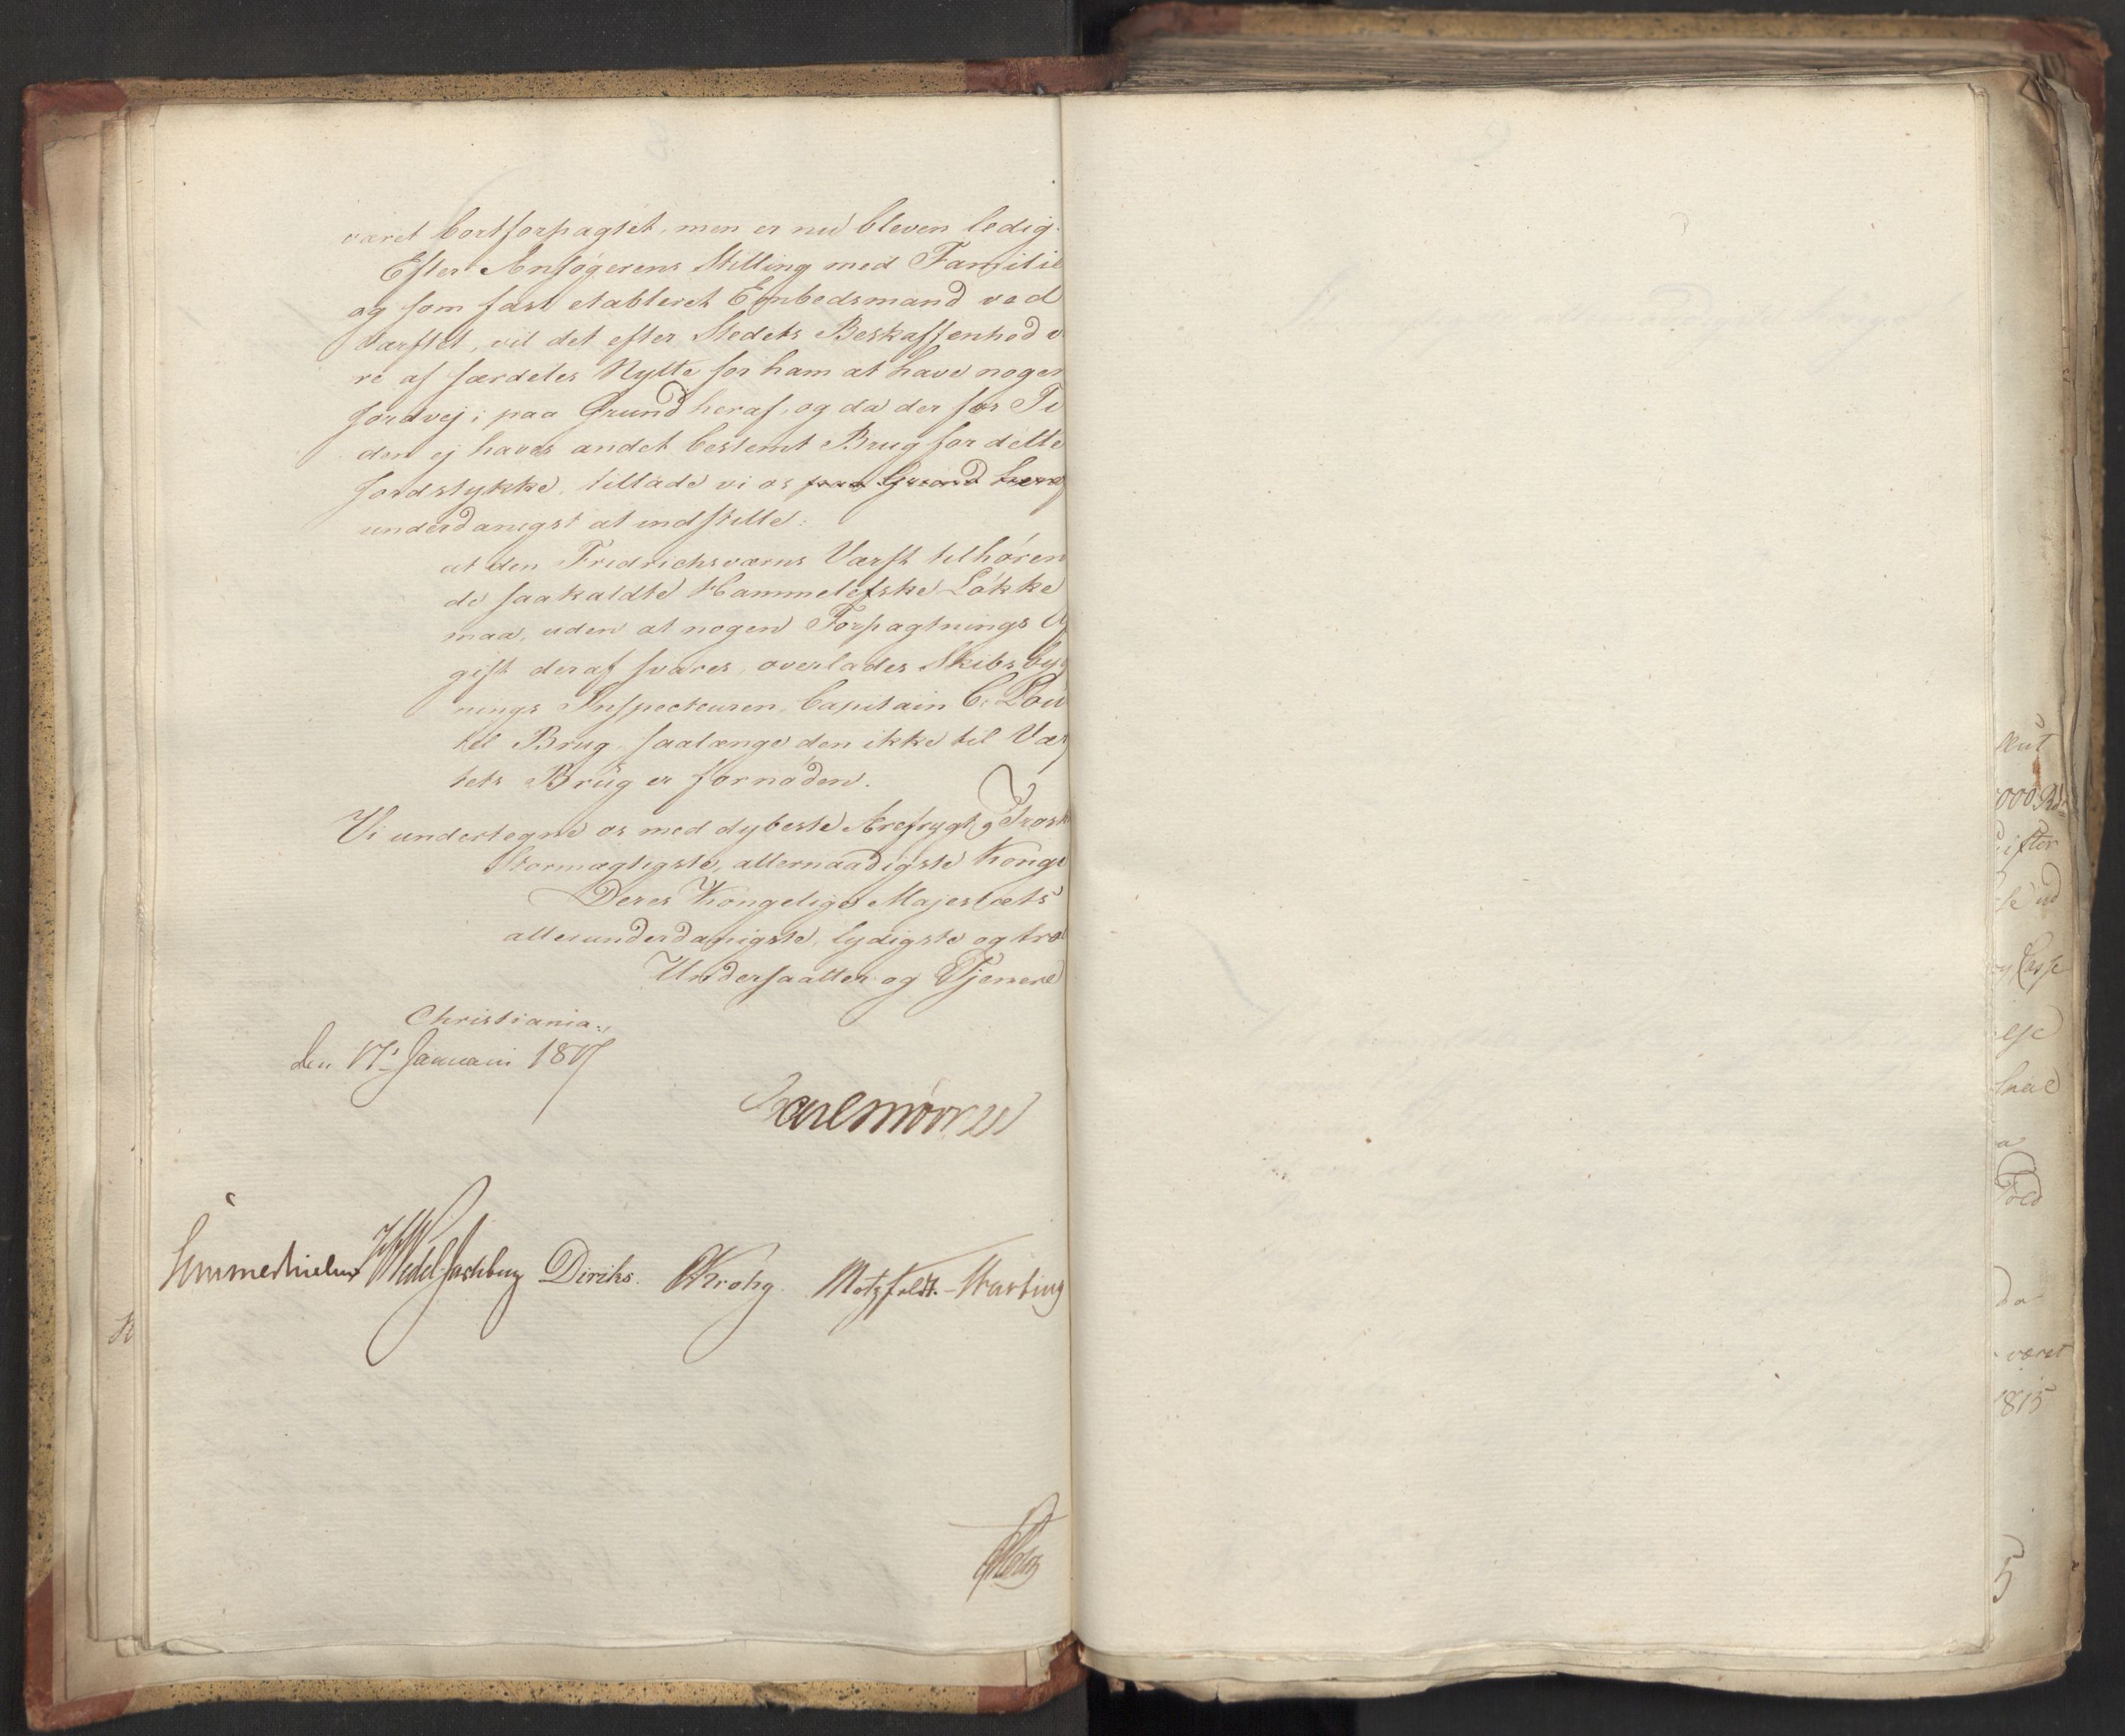 været bortforpagtet, men er nu bleven ledig.
Efter Ansøgerens Stilling med Familie
og som fast etableret Embedsmand ved
Værftet, vil det efter Stedets Beskaffenhed v
re af særdeles Nytte for ham at have noger
Jordvej; paa Grund heraf, og da der for Ti
den ej haves andet bestemt Brug for dette
Jordstykke, tillade vi os paa Grund heraf
underdanigst at indstille:
at den Fredrichsværns Værft tilhøren
de saakaldte Hammelefske Løkke
maa, uden at nogen Forpagtnings A
gift deraf svares, overlades Skibs byg
nings Inspecteuren, Capitain C.
til Brug, saalænge den ikke til Værf
tets Brug er fornøden.
Vi undertegne os med dybeste Ærefrygt og Trosk
Stormægtigste, allernaadigste Konge
Deres Kongelige Majestæts
allerunderdanigste, lydigste og tro
Undersaatter og Tjenere
Christiania,
den 17 Januarii 1817
Carl Mörner
Sommerhielm Wedel Jarlsberg Diriks. CKrohg. Motzfeldt. Wasting
Kut
000 Rd
ifter
se ud
Casse
else
Told
Da
været
1815
5